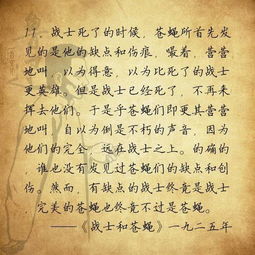 11. 战士死了的时候，苍蝇所首先发
见的是他的缺点和伤痕，嘬着，营营
地叫，以为得意，以为比死了的战士
更英雄。但是战士已经死了，不再来
挥去他们。于是乎苍蝇们即更其营营
地叫，自以为倒是不朽的声音，因为
他们的完全，远在战士之上。的确的
，谁也没有发见过苍蝇们的缺点和创
伤。然而，有缺点的战士终竟是战士
，完美的苍蝇也终竟不过是苍蝇。
——《战士和苍蝇》一九二五年